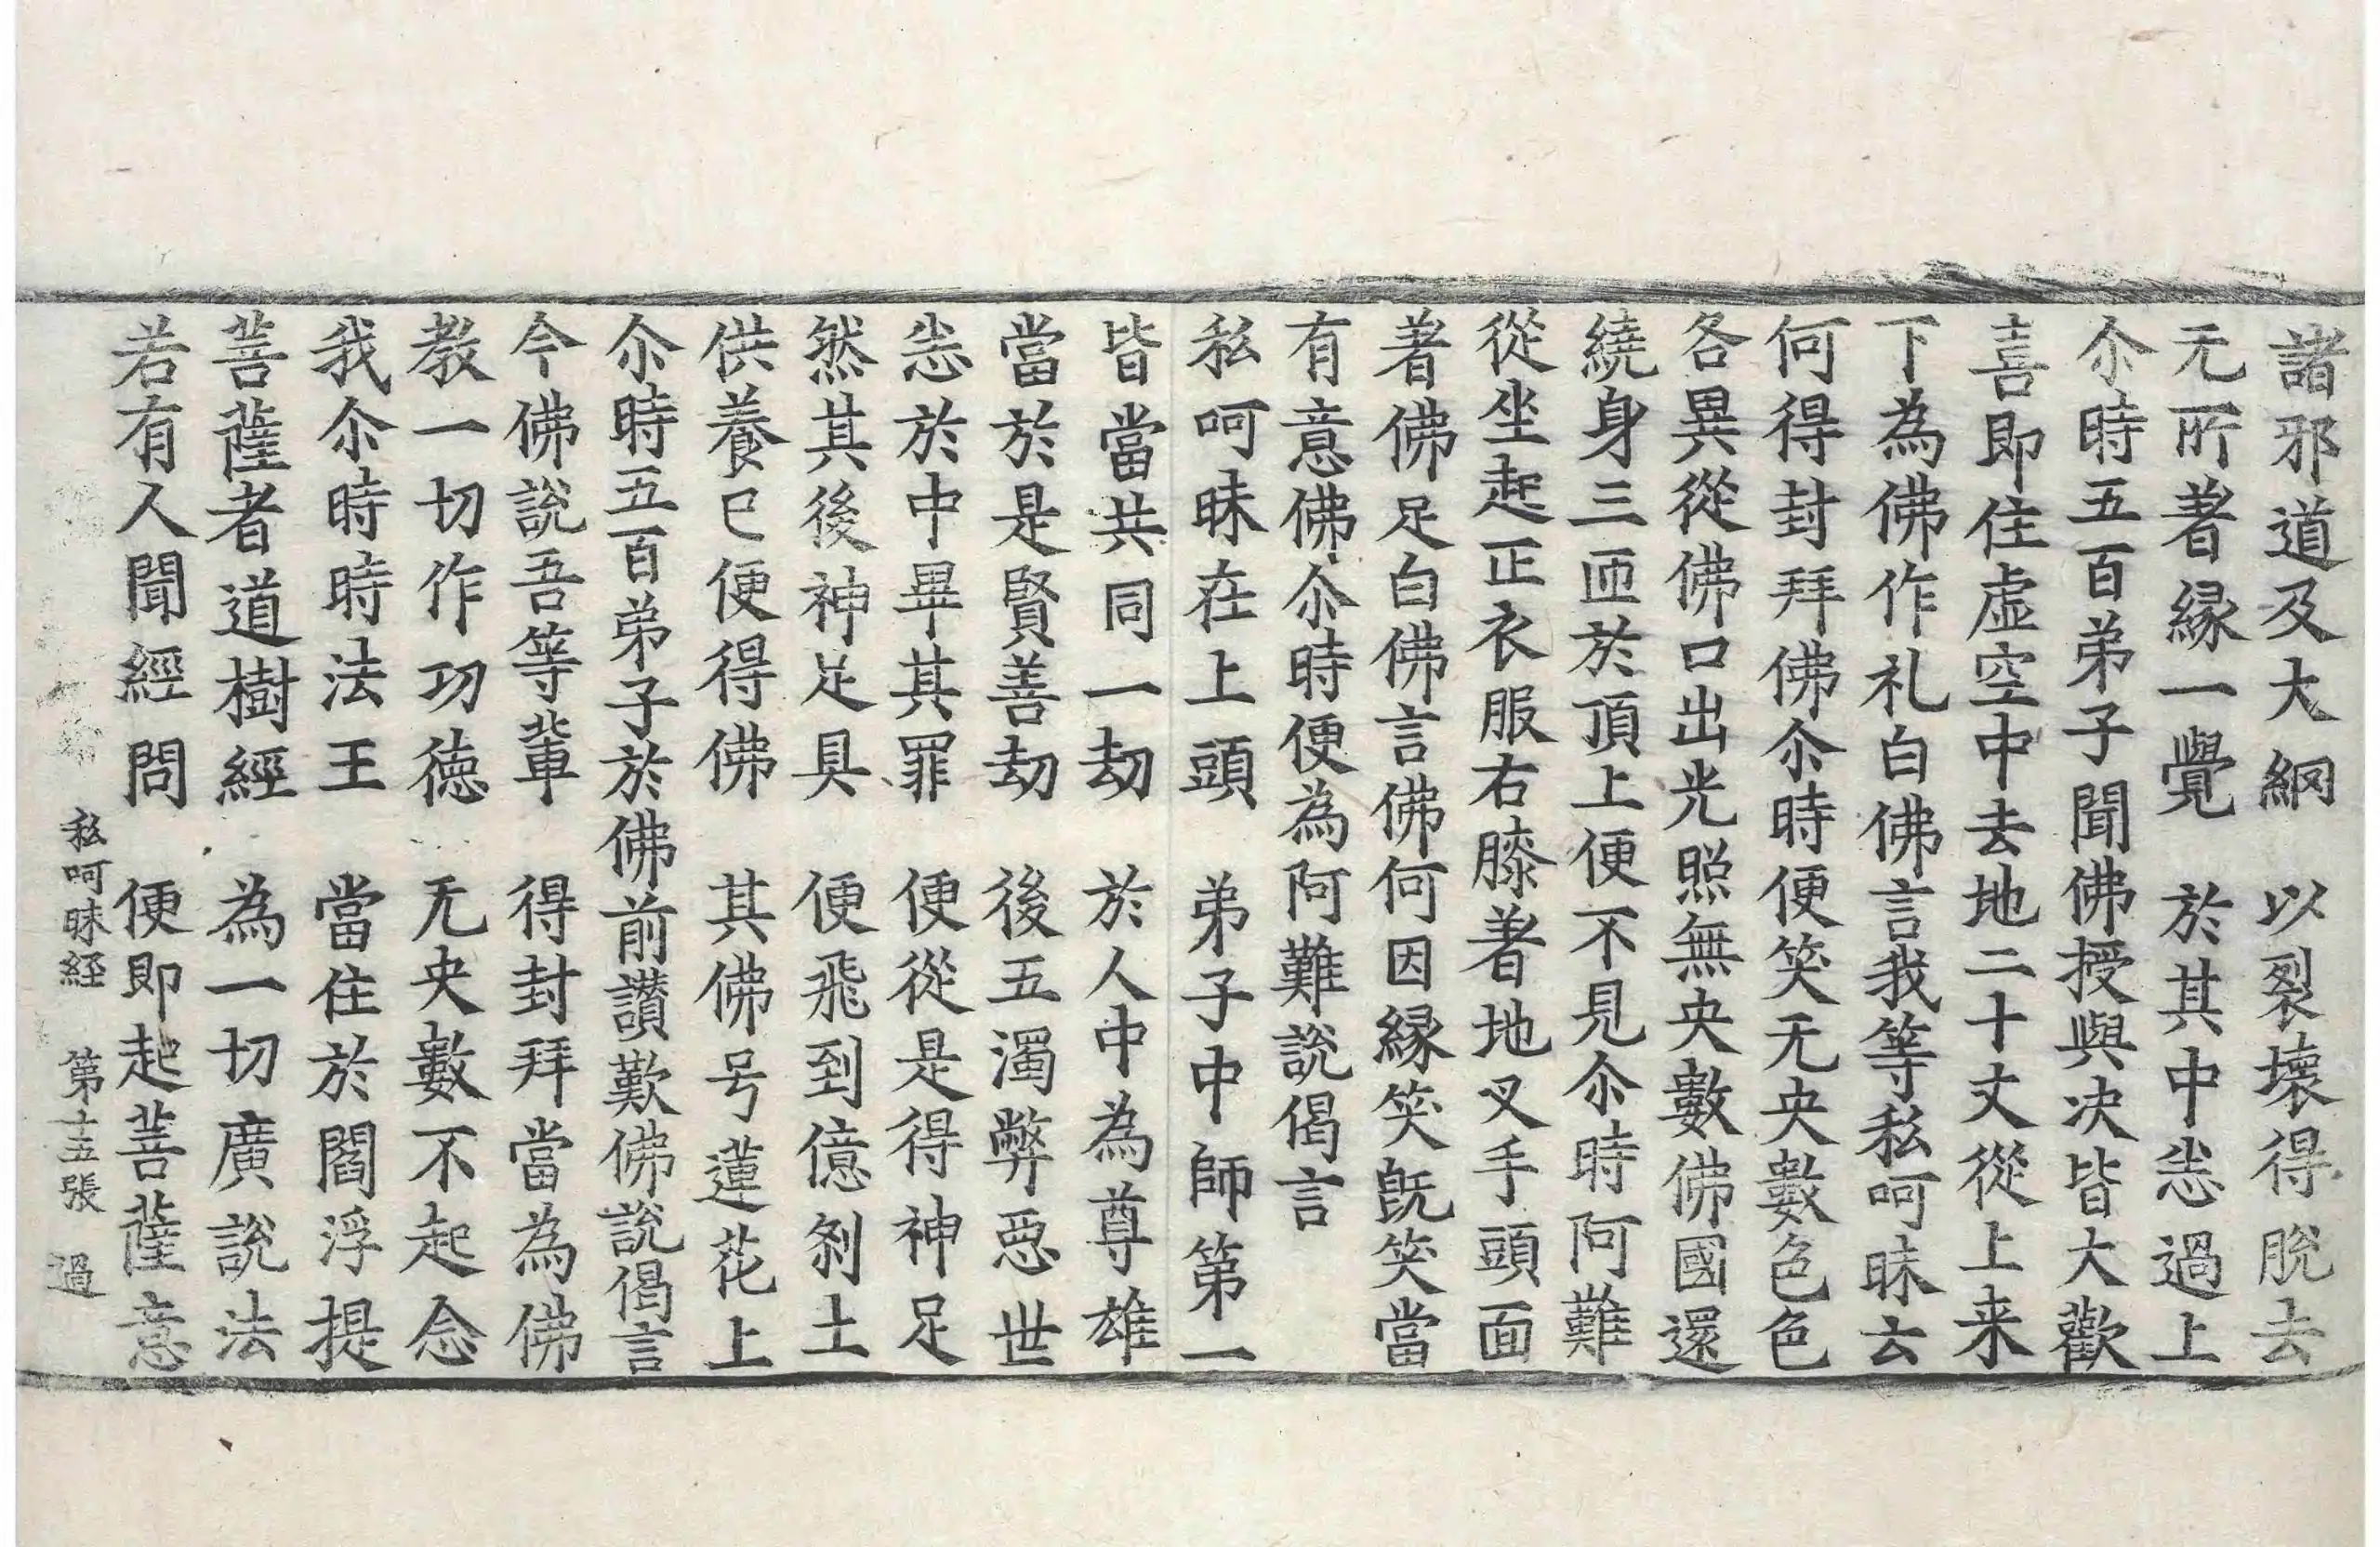 諸邪道及大綱　以裂壞得脫去
无所著縁一覺　於其中恙過上
尒時五百弟子聞佛授與决皆大歡
喜即住虛空中去地二十丈從上来
下為佛作礼白佛言我等私呵昧云
何得封拜佛尒時便笑无央數色色
各異從佛口出光照無央數佛國還
繞身三匝於頂上便不見尒時阿難
從坐起正衣服右膝著地叉手頭面
著佛足白佛言佛何因縁笑旣笑當
有意佛尒時便為阿難說偈言
私呵昧在上頭　弟子中師第一
皆當共同一劫　於人中為尊雄
當於是賢善劫　後五濁弊惡世
恙於中畢其罪　便從是得神足
然其後神足具　便飛到億剎土
供養已便得佛　其佛号蓮花上
尒時五百弟子於佛前讃歎佛說偈言
今佛說吾等輩　得封拜當為佛
教一切作功德　无央數不起念
我尒時時法王　當住於閻浮提
菩薩者道樹經　為一切廣說法
若有人聞經問　便即起菩薩意
私呵昧経　第十五張　過